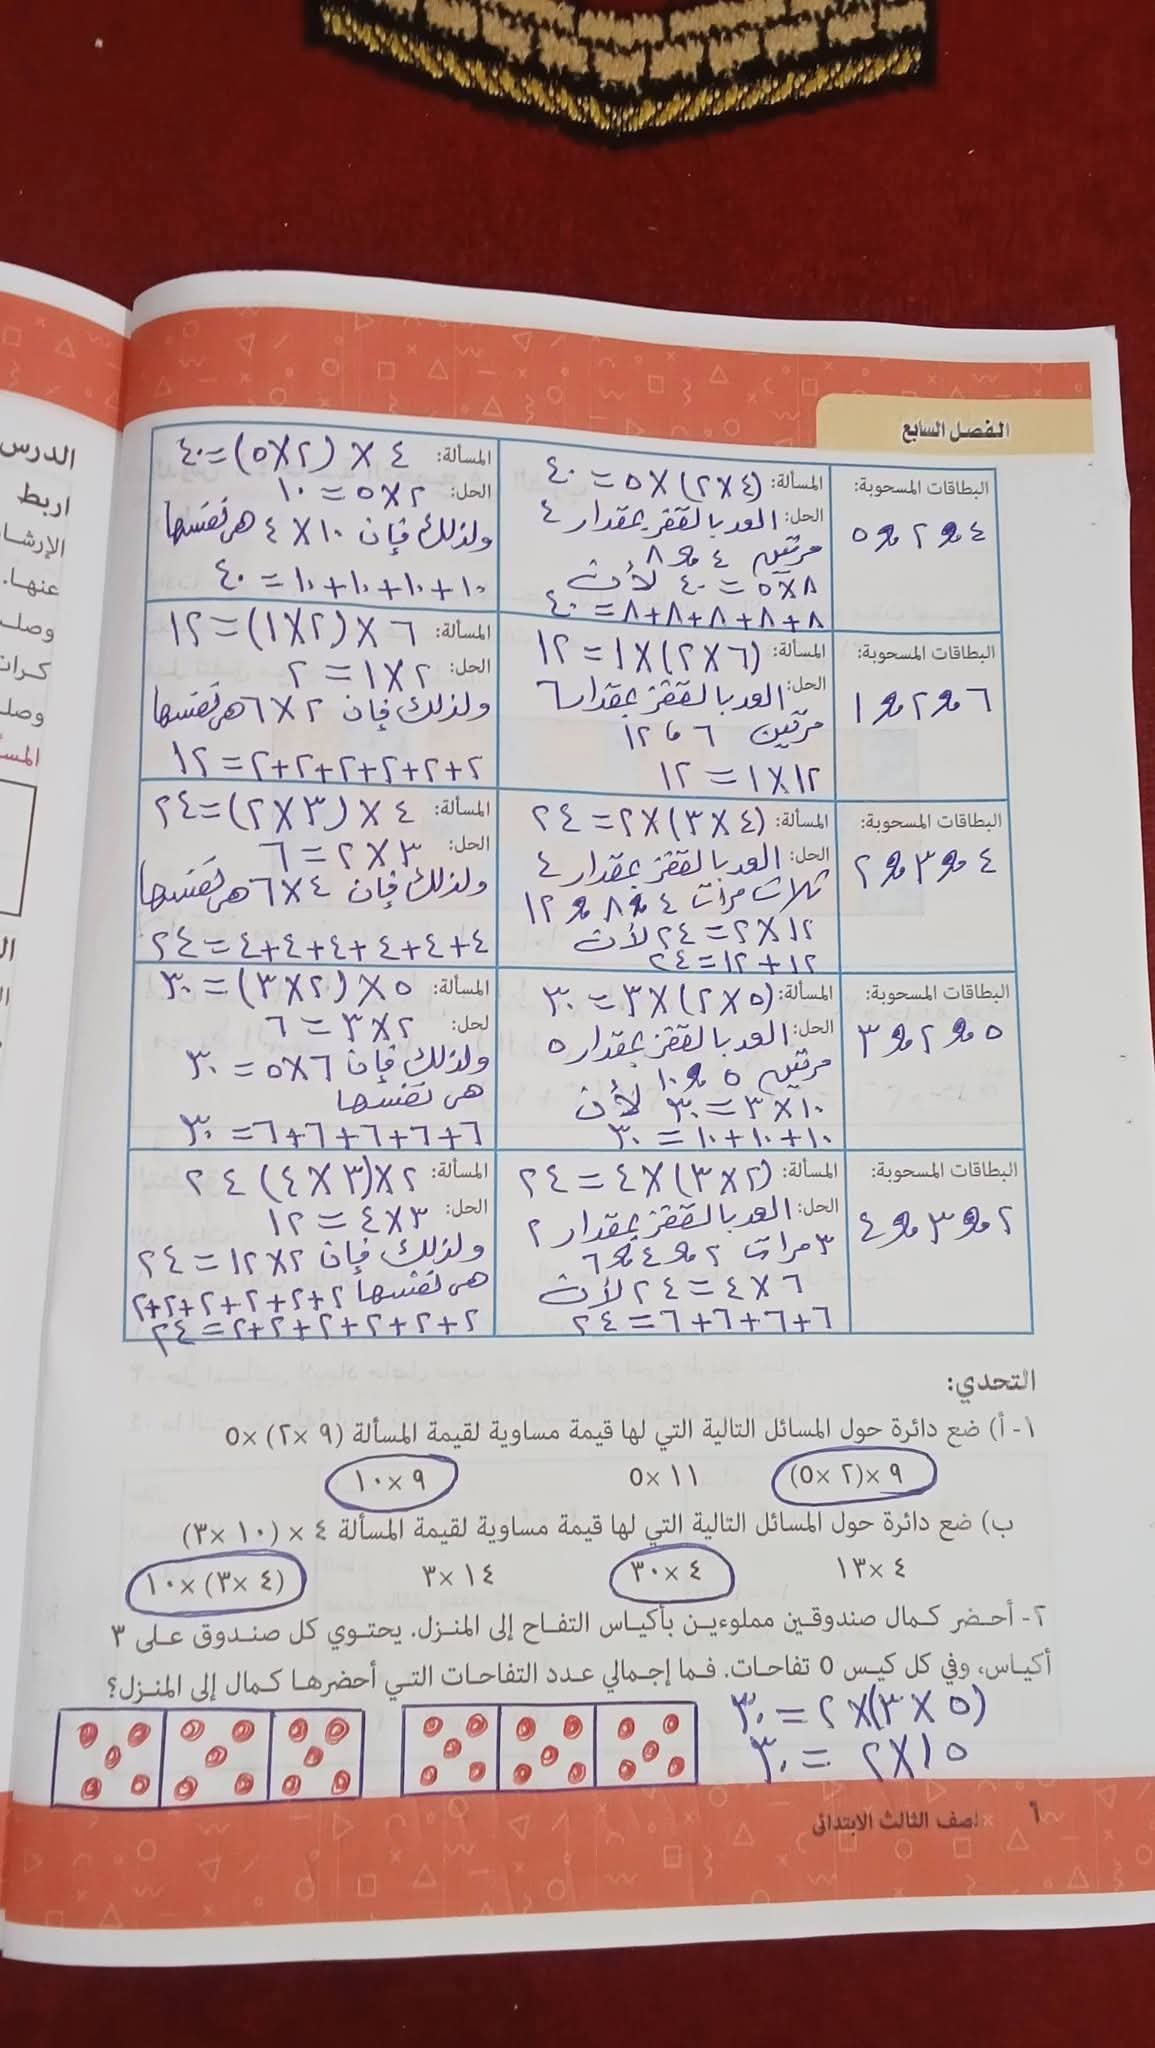 الفصل السابع
البطاقات المسحوبة:
٤ و ٢ و ٥
المسألة: (٤×٢)×٥=٤٠
الحل: العد بالقفز بمقدار ٤
مرتين ٤ و ٨
٨×٥=٤٠ لأن
٨+٨+٨+٨+٨=٤٠
المسألة: ٤×(٢×٥)=٤٠
الحل: ٢×٥=١٠
ولذلك فإن ١٠×٤ هى نفسها
١٠+١٠+١٠+١٠=٤٠
البطاقات المسحوبة:
٦ و ٢ و ١
المسألة: (٦×٢)×١=١٢
الحل: العد بالقفز بمقدار ٦
مرتين ٦ و ١٢
١٢×١=١٢
المسألة: ٦×(٢×١)=١٢
الحل: ٢×١=٢
ولذلك فإن ٢×٦ هى نفسها
٢+٢+٢+٢+٢+٢=١٢
البطاقات المسحوبة:
٤ و ٣ و ٢
المسألة: (٤×٣)×٢=٢٤
الحل: العد بالقفز بمقدار ٤
ثلاث مرات ٤ و ٨ و ١٢
١٢×٢=٢٤ لأن
١٢+١٢=٢٤
المسألة: ٤×(٣×٢)=٢٤
الحل: ٣×٢=٦
ولذلك فإن ٤×٦ هى نفسها
٤+٤+٤+٤+٤+٤=٢٤
البطاقات المسحوبة:
٥ و ٢ و ٣
المسألة: (٥×٢)×٣=٣٠
الحل: العد بالقفز بمقدار ٥
مرتين ٥ و ١٠
١٠×٣=٣٠ لأن
١٠+١٠+١٠=٣٠
المسألة: ٥×(٢×٣)=٣٠
لحل: ٢×٣=٦
ولذلك فإن ٦×٥=٣٠
هى نفسها
٦+٦+٦+٦+٦=٣٠
البطاقات المسحوبة:
٢ و ٣ و ٤
المسألة: (٢×٣)×٤=٢٤
الحل: العد بالقفز بمقدار ٢
٣ مرات ٢ و ٤ و ٦
٦×٤=٢٤ لأن
٦+٦+٦+٦=٢٤
المسألة: ٢×(٣×٤) ٢٤
الحل: ٣×٤=١٢
ولذلك فإن ٢×١٢=٢٤
هى نفسها ٢+٢+٢+٢+٢+٢+
٢+٢+٢+٢+٢+٢=٢٤
التحدي:
١- أ) ضع دائرة حول المسائل التالية التي لها قيمة مساوية لقيمة المسألة (٩ ×٢) ×٥
٩ ×(٢ ×٥)
١١ ×٥
٩ ×١٠
ب) ضع دائرة حول المسائل التالية التي لها قيمة مساوية لقيمة المسألة ٤ × (١٠ ×٣)
٤ ×١٣
٤ ×٣٠
١٤ ×٣
(٤ ×٣) ×١٠
٢- أحضر كمال صندوقين مملوءين بأكياس التفاح إلى المنزل. يحتوي كل صندوق على ٣
أكياس، وفي كل كيس ٥ تفاحات. فما إجمالي عدد التفاحات التي أحضرها كمال إلى المنزل؟
(٥×٣)×٢=٣٠
١٥×٢=٣٠
٦
لصف الثالث الابتدائى
الدرس
اربط
عنها.